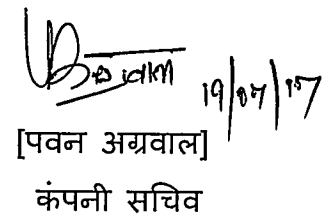 19/07/17
[पवन अग्रवाल]
कंपनी सचिव